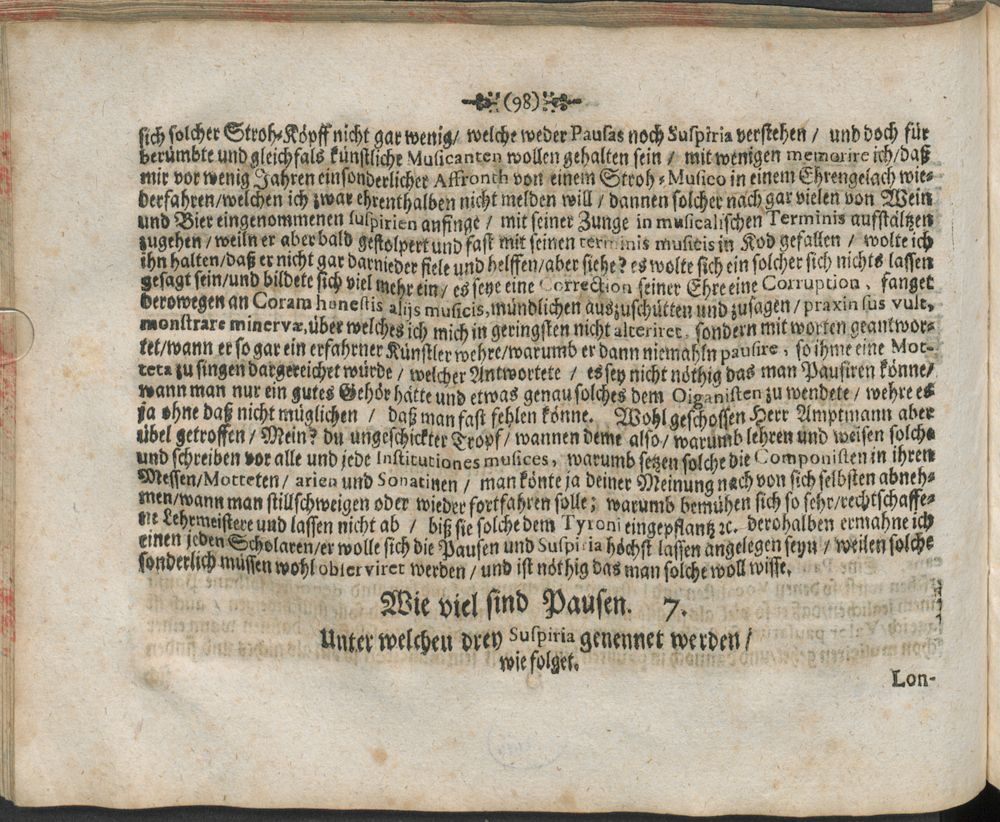 (98)
sich solcher Stroh-Köpff nicht gar wenig/ welche weder Pausas noch Suspiria verstehen / und doch für
berümbte und gleichfals künstliche Musicanten wollen gehalten sein / mit wenigen memorire ich/daß
mir vor wenig Jahren ein sonderlicher Affronth von einem Stroh-Musico in einem Ehrengelach wie-
derfahren/welchen ich zwar ehrenthalben nicht melden will / dannen solcher nach gar vielen von Wein
und Bier eingenommenen suspirien anfinge / mit seiner Zunge in musicalischen Terminis auffstältzen
zugehen / weiln er aber bald gestolpert und fast mit seinen terminis musicis in Kod gefallen / wolte ich
ihn halten/daß er nicht gar darnieder fiele und helffen/aber siehe? es wolte sich ein solcher sich nichts lassen
gesagt sein/und bildete sich viel mehr ein / es seye eine Correction seiner Ehre eine Corruption, fanget
derowegen an Coram honestis alijs musicis, mündlichen auszuschütten und zusagen / praxin sus vult,
monstrare minervæ, über welches ich mich in geringsten nicht alteriret, sondern mit worten geantwor-
tet/wann er so gar ein erfahrner Künstler wehre/warumb er dann niemahln pausire, so ihme eine Mot-
teta zu singen dargereichet würde / welcher Antwortete / es sey nicht nöthig das man Pausiren könne/
wann man nur ein gutes Gehör hätte und etwas genau solches dem Organisten zu wendete / wehre es
ja ohne daß nicht müglichen / daß man fast fehlen könne. Wohl geschossen Herr Amptmann aber
übel getroffen / Mein? du ungeschickter Tropf / wannen deme also / warumb lehren und weisen solche
und schreiben vor alle und jede Institutiones musices, warumb setzen solche die Componisten in ihren
Messen/Motteten / arien und Sonatinen / man könte ja deiner Meinung nach von sich selbsten abneh-
men/wann man stillschweigen oder wieder fortfahren solle; warumb bemühen sich so sehr/rechtschaffe-
ne Lehrmeistere und lassen nicht ab / biß sie solche dem Tyroni eingepflantz ꝛc. derohalben ermahne ich
einen jeden Scholaren/er wolle sich die Pausen und Suspiria höchst lassen angelegen seyn / weilen solche
sonderlich müssen wohl observiret werden / und ist nöthig das man solche woll wisse.
Wie viel sind Pausen. 7.
Unter welchen drey Suspiria genennet werden /
wie folget.
Lon-